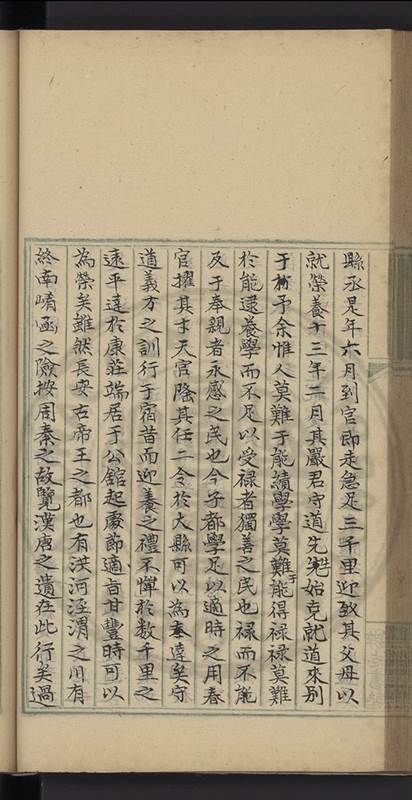 縣丞是年六月到官即走急足三千里迎致其父母以
就榮養十三年二月其嚴君守道先甦始克就道來别
于村予余惟人莫難于能績學學莫難于能得禄禄莫難
於能逮養學而不足以受禄者獨善之民也禄而不能
及于奉親者永感之民也今子都學足以適時之用春
官擢其才天官隆其任二令於大縣可以為秦遠矣守
道義方之訓行于宿昔而迎養之禮不憚於数千里之
遠平達於康莊端居于公舘起處節適旨甘豐時可以
為榮矣雖然長安古帝王之都也有洪河涇渭之川有
終南崤函之險按周秦之故覽漢唐之遺在此行矣過